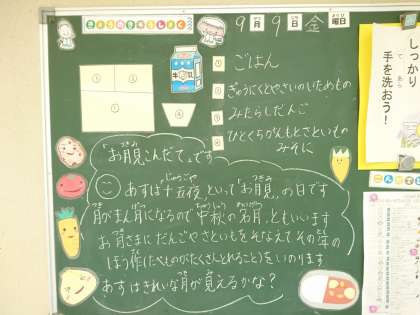 きょうのきゅうしょく
9月9日金曜日
牛乳
① ごはん
② ぎゅうにくとやさいのいためもの
③ みたらしだんご
④ ひとくちがんもとさといもの
みそに
しっかり
手を洗おう!
「お月見こんだて」です
あすは「十五夜」といって「お月見」の日です
月がまん月になるので「中秋の名月」ともいいます
お月さまにだんごやさといもをそなえてその年の
ほう作(たべものがたくさんとれること)をいのります
あすはきれいな月が見えるかな?